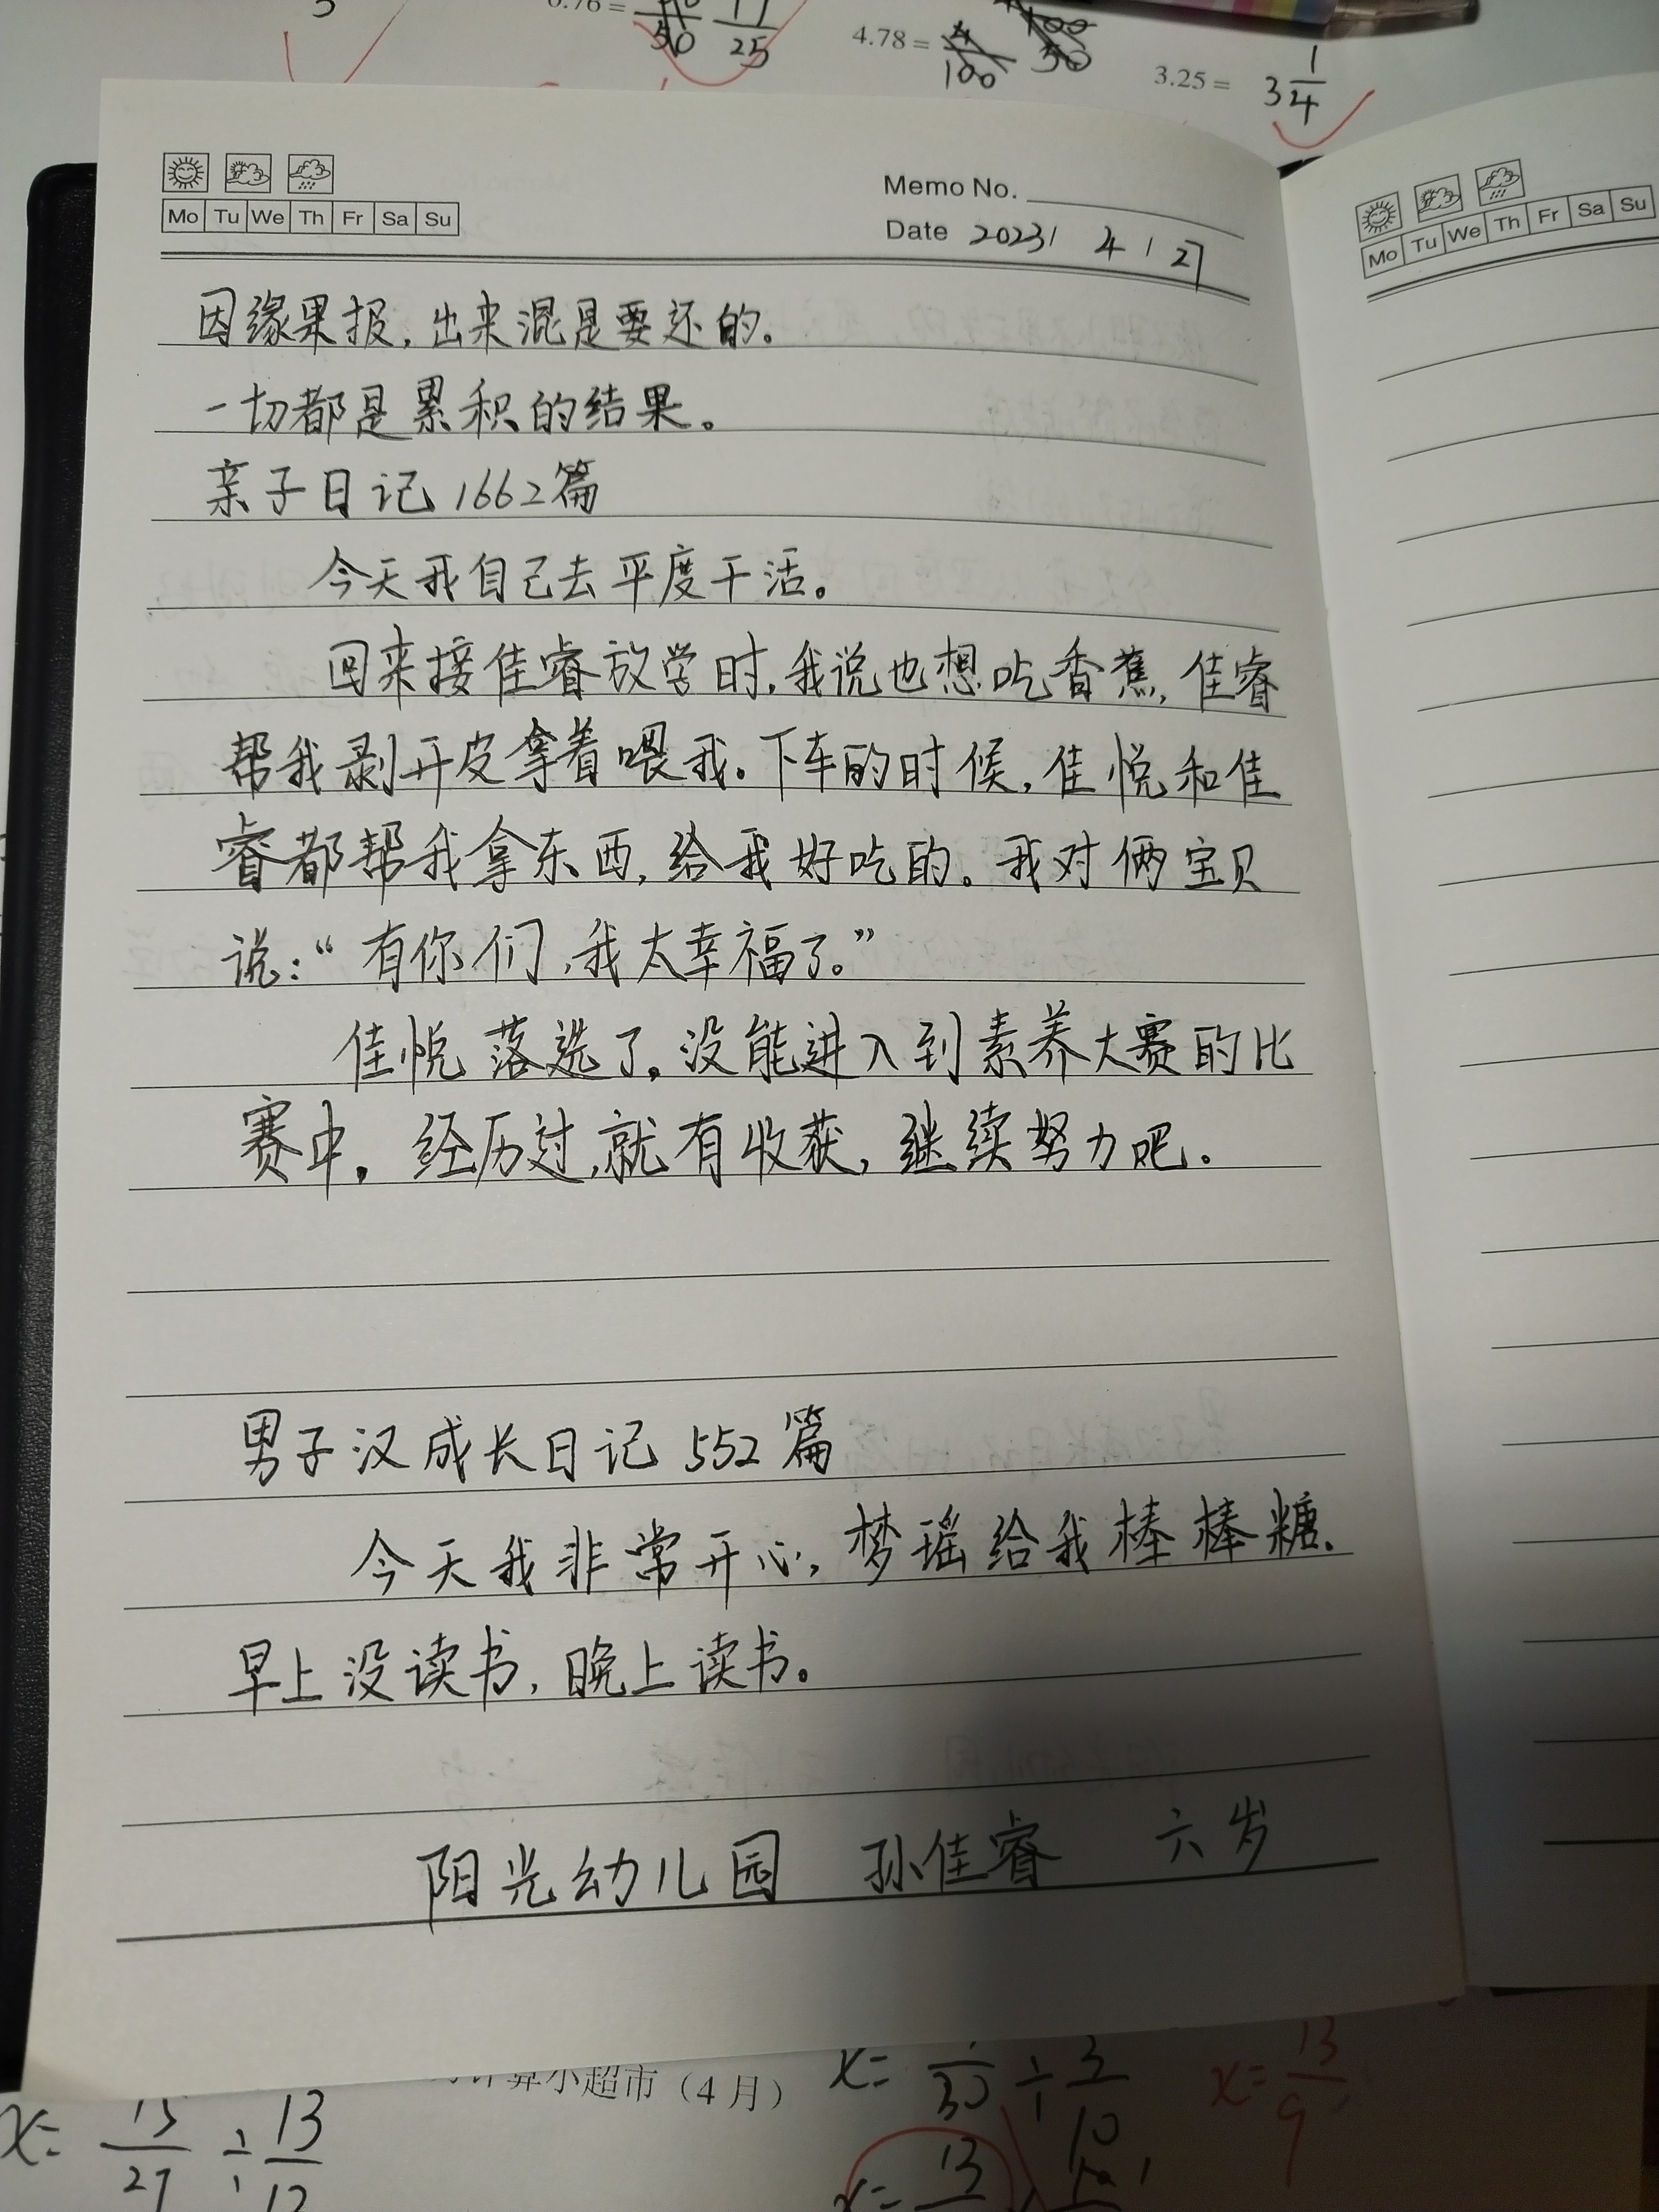 0.76 = 
25
4.78 =
100
3.25 = 3 1/4
Mo Tu We Th Fr Sa Su
Memo No.
Date 2023 / 4 / 27
Mo Tu We Th Fr Sa Su
因缘果报，出来混是要还的。
一切都是累积的结果。
亲子日记1662篇
今天我自己去平度干活。
回来接佳睿放学时，我说也想吃香蕉，佳睿
帮我剥开皮拿着喂我。下车的时候，佳悦和佳
睿都帮我拿东西，给我好吃的。我对俩宝贝
说：“有你们，我太幸福了。”
佳悦落选了。没能进入到素养大赛的比
赛中。经历过，就有收获，继续努力吧。
男子汉成长日记552篇
今天我非常开心，梦瑶给我棒棒糖、
早上没读书，晚上读书。
阳光幼儿园 孙佳睿 六岁
算小超市（4月）
x=
27
÷
13
x=
30
÷
3
10
x= 13/9
x= 13